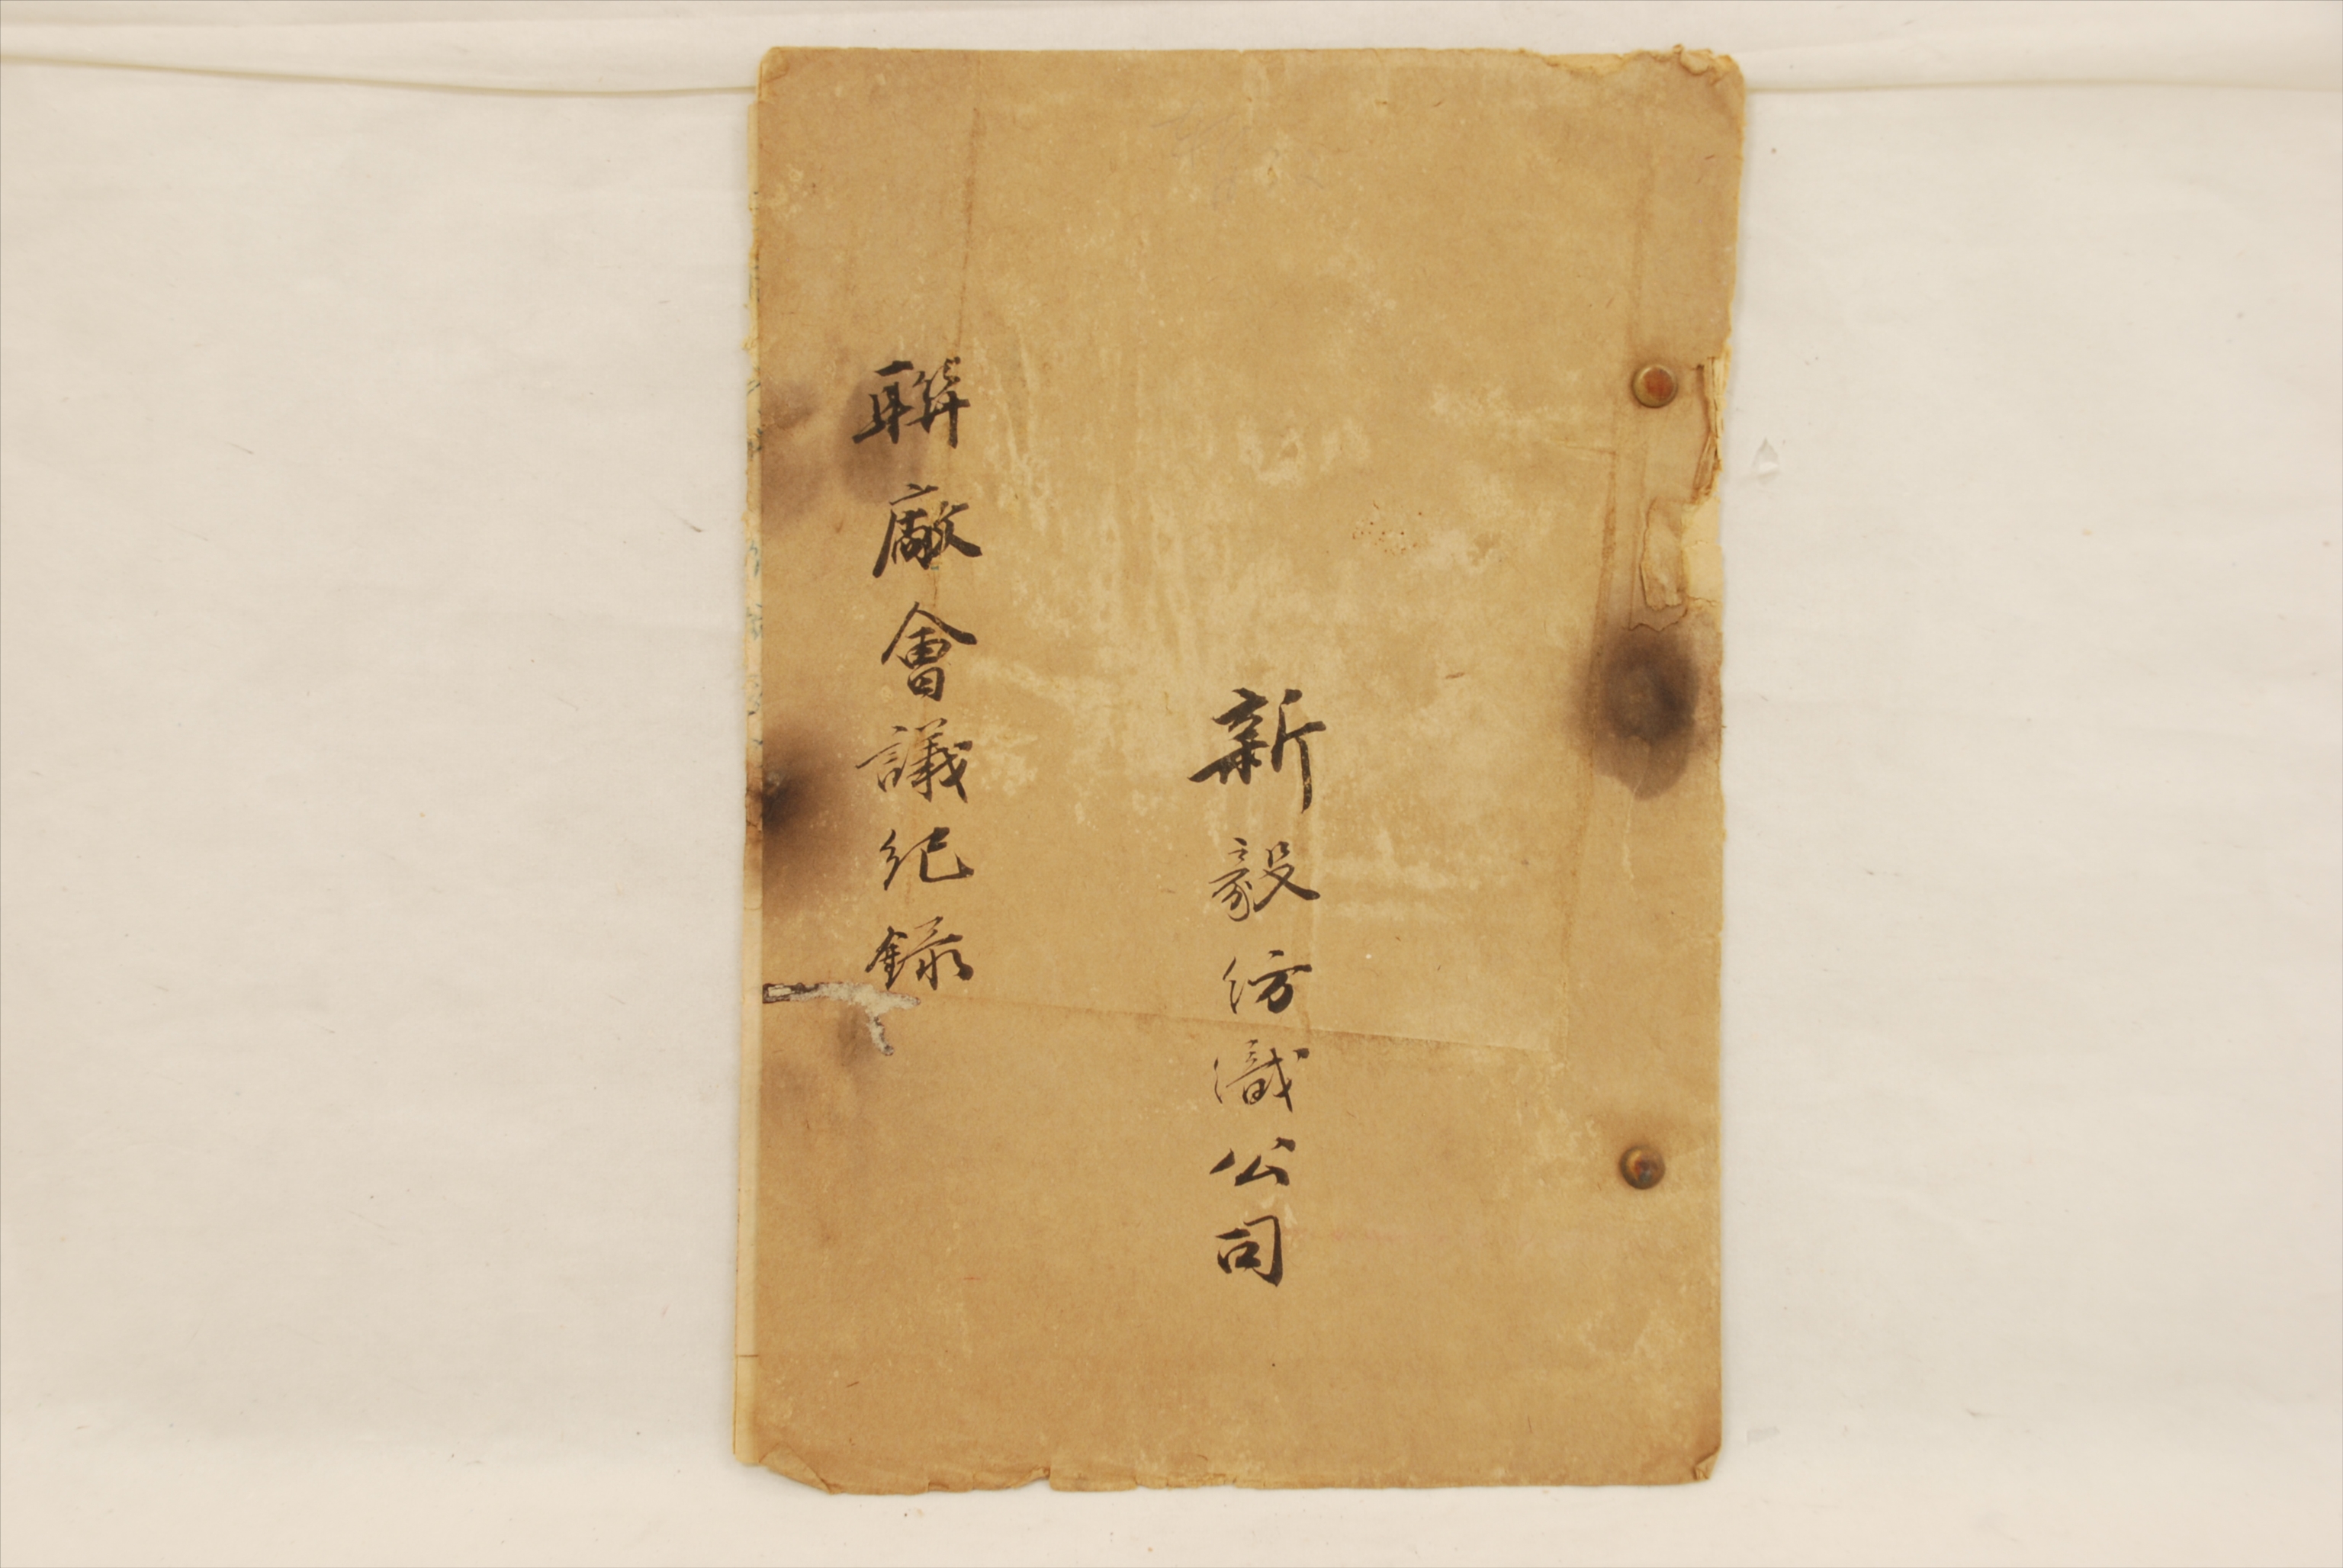 新毅紡織公司
聯廠會議纪錄